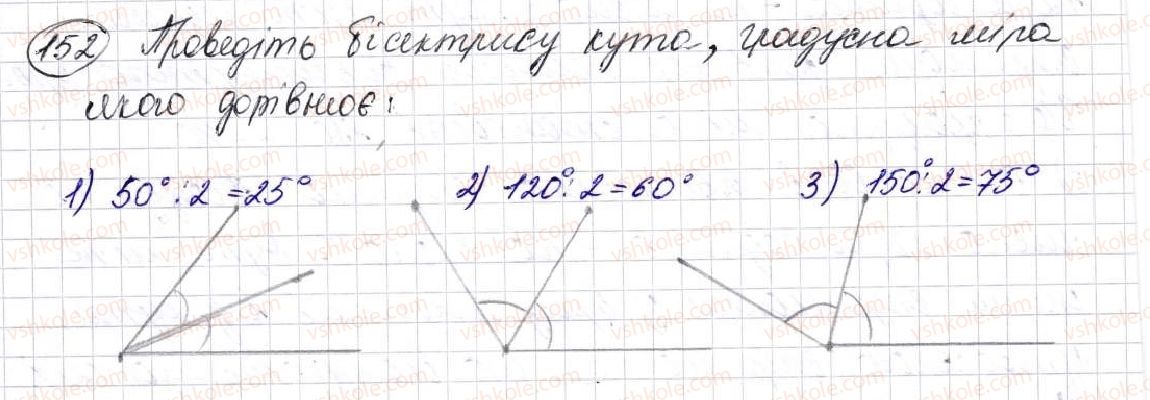 152 Проведіть бісектрису кута, градусна міра
якого дорівнює:
1) 50° : 2 = 25° 2) 120° : 2 = 60° 3) 150° : 2 = 75°